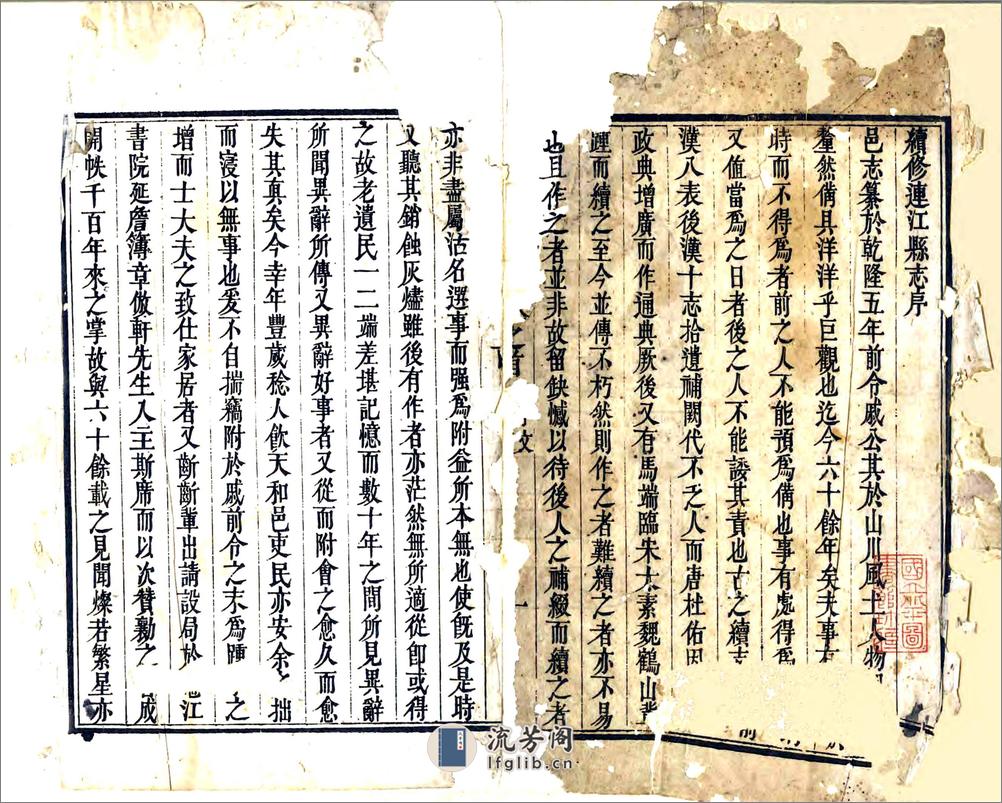 續修連江縣志序
邑志纂於乾隆五年前令戚公其於山川風土人物
釐然備具洋洋乎巨觀也迄今六十餘年矣夫事有
時而不得爲者前之人不能預爲備也事有處得爲
又值當爲之日者後之人不能諉其責也古之續
漢八表後漢十志拾遺補闕代不乏人而唐杜佑因
政典增廣而作通典厥後又有馬端臨宋太素魏鶴山輩
踵而續之至今並傳不朽然則作之者難續之者亦不易
也且作之者並非故留缺憾以待後人之補綴而續之者
亦非盡屬沽名選事而强爲附益所本無也使旣及是時
又聽其銷蝕灰燼雖後有作者亦茫然無所適從卽或得
之故老遺民一二端差堪記憶而數十年之間所見異辭
所聞異辭所傳又異辭好事者又從而附會之愈久而愈
失其眞矣今幸年豐歲稔人飮天和邑吏民亦安余之拙
而寖以無事也爰不自揣竊附於戚前令之末爲踵之
增而士大夫之致仕家居者又齗齗輩出請設局於江
書院延詹簿章倣軒先生入主斯席而以次贊勷之成
開帙千百年來之掌故與六十餘載之見聞燦若繁星亦
一
流芳阁
lfglib.cn